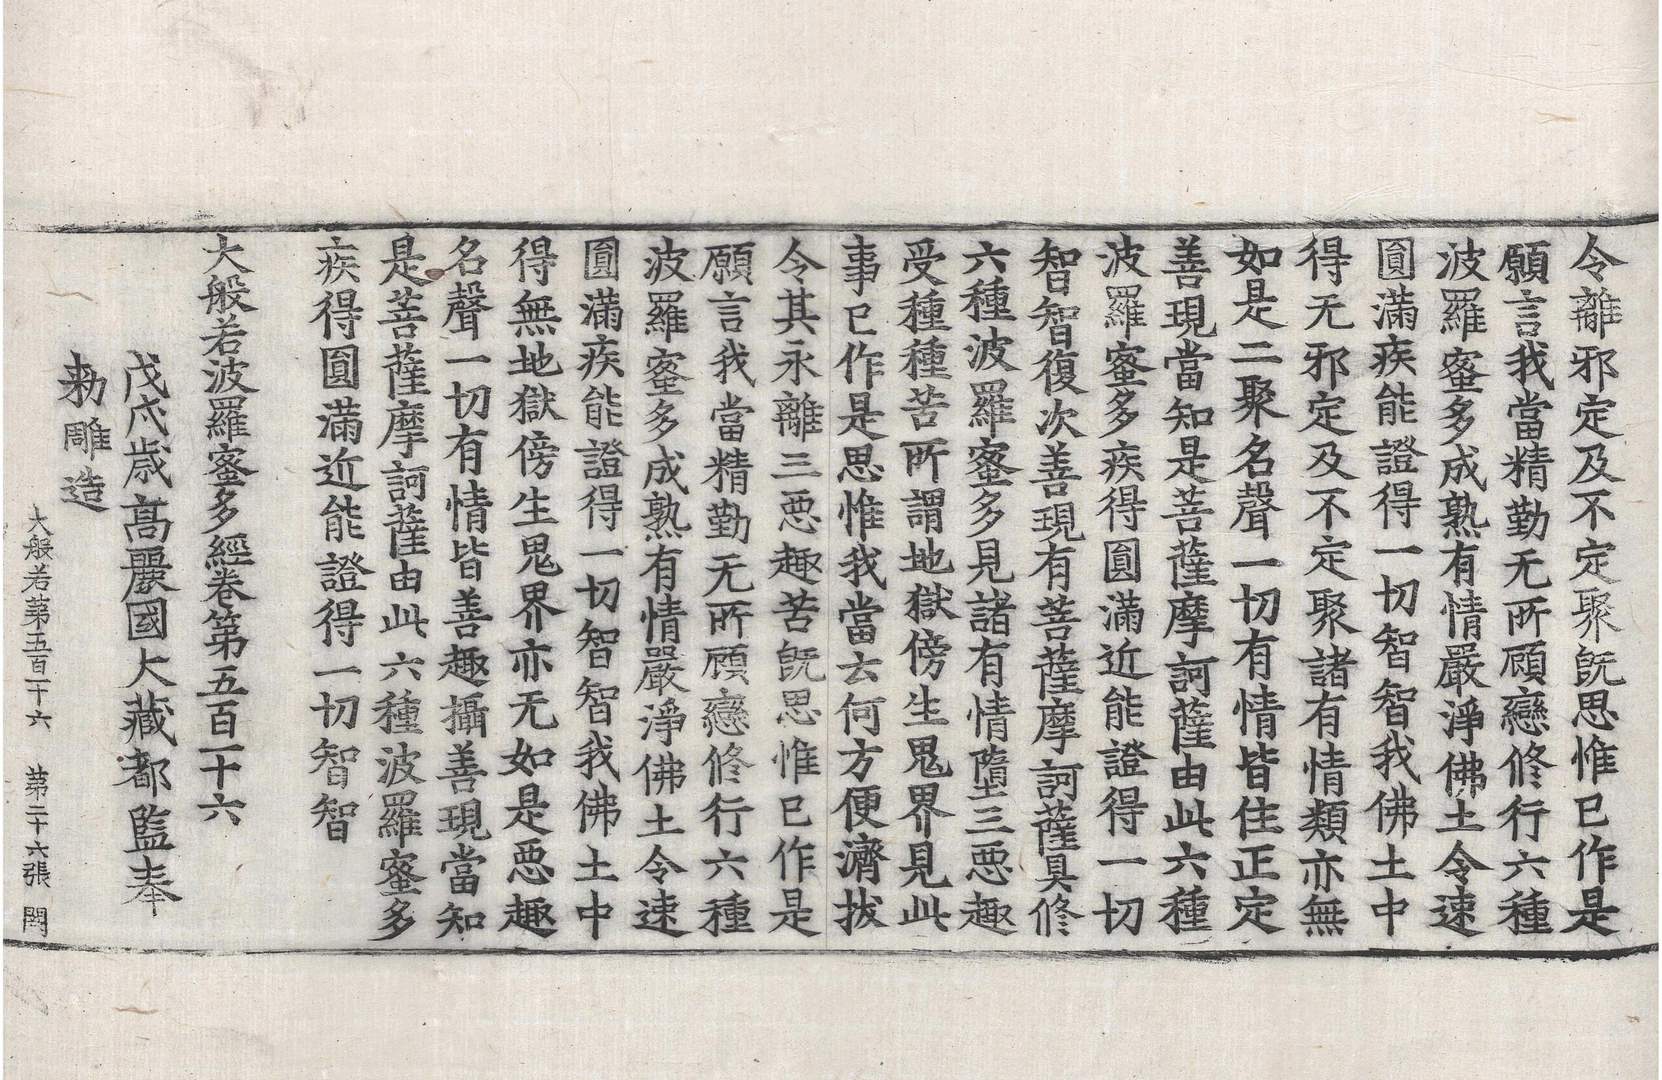 令離邪定及不定聚既思惟已作是
願言我當精勤无所顧戀修行六種
波羅蜜多成熟有情嚴淨佛土令速
圓滿疾能證得一切智智我佛土中
得无邪定及不定聚諸有情類亦無
如是二聚名聲一切有情皆住正定
善現當知是菩薩摩訶薩由此六種
波羅蜜多疾得圓滿近能證得一切
智智復次善現有菩薩摩訶薩具修
六種波羅蜜多見諸有情墮三惡趣
受種種苦所謂地獄傍生鬼界見此
事已作是思惟我當云何方便濟拔
令其永離三惡趣苦既思惟已作是
願言我當精勤无所顧戀修行六種
波羅蜜多成熟有情嚴淨佛土令速
圓滿疾能證得一切智智我佛土中
得無地獄傍生鬼界亦无如是惡趣
名聲一切有情皆善趣攝善現當知
是菩薩摩訶薩由此六種波羅蜜多
疾得圓滿近能證得一切智智
大般若波羅蜜多經卷第五百一十六
戊戌歲高麗國大藏都監奉
勑雕造
大般若第五百一十六　第二十六張　閏